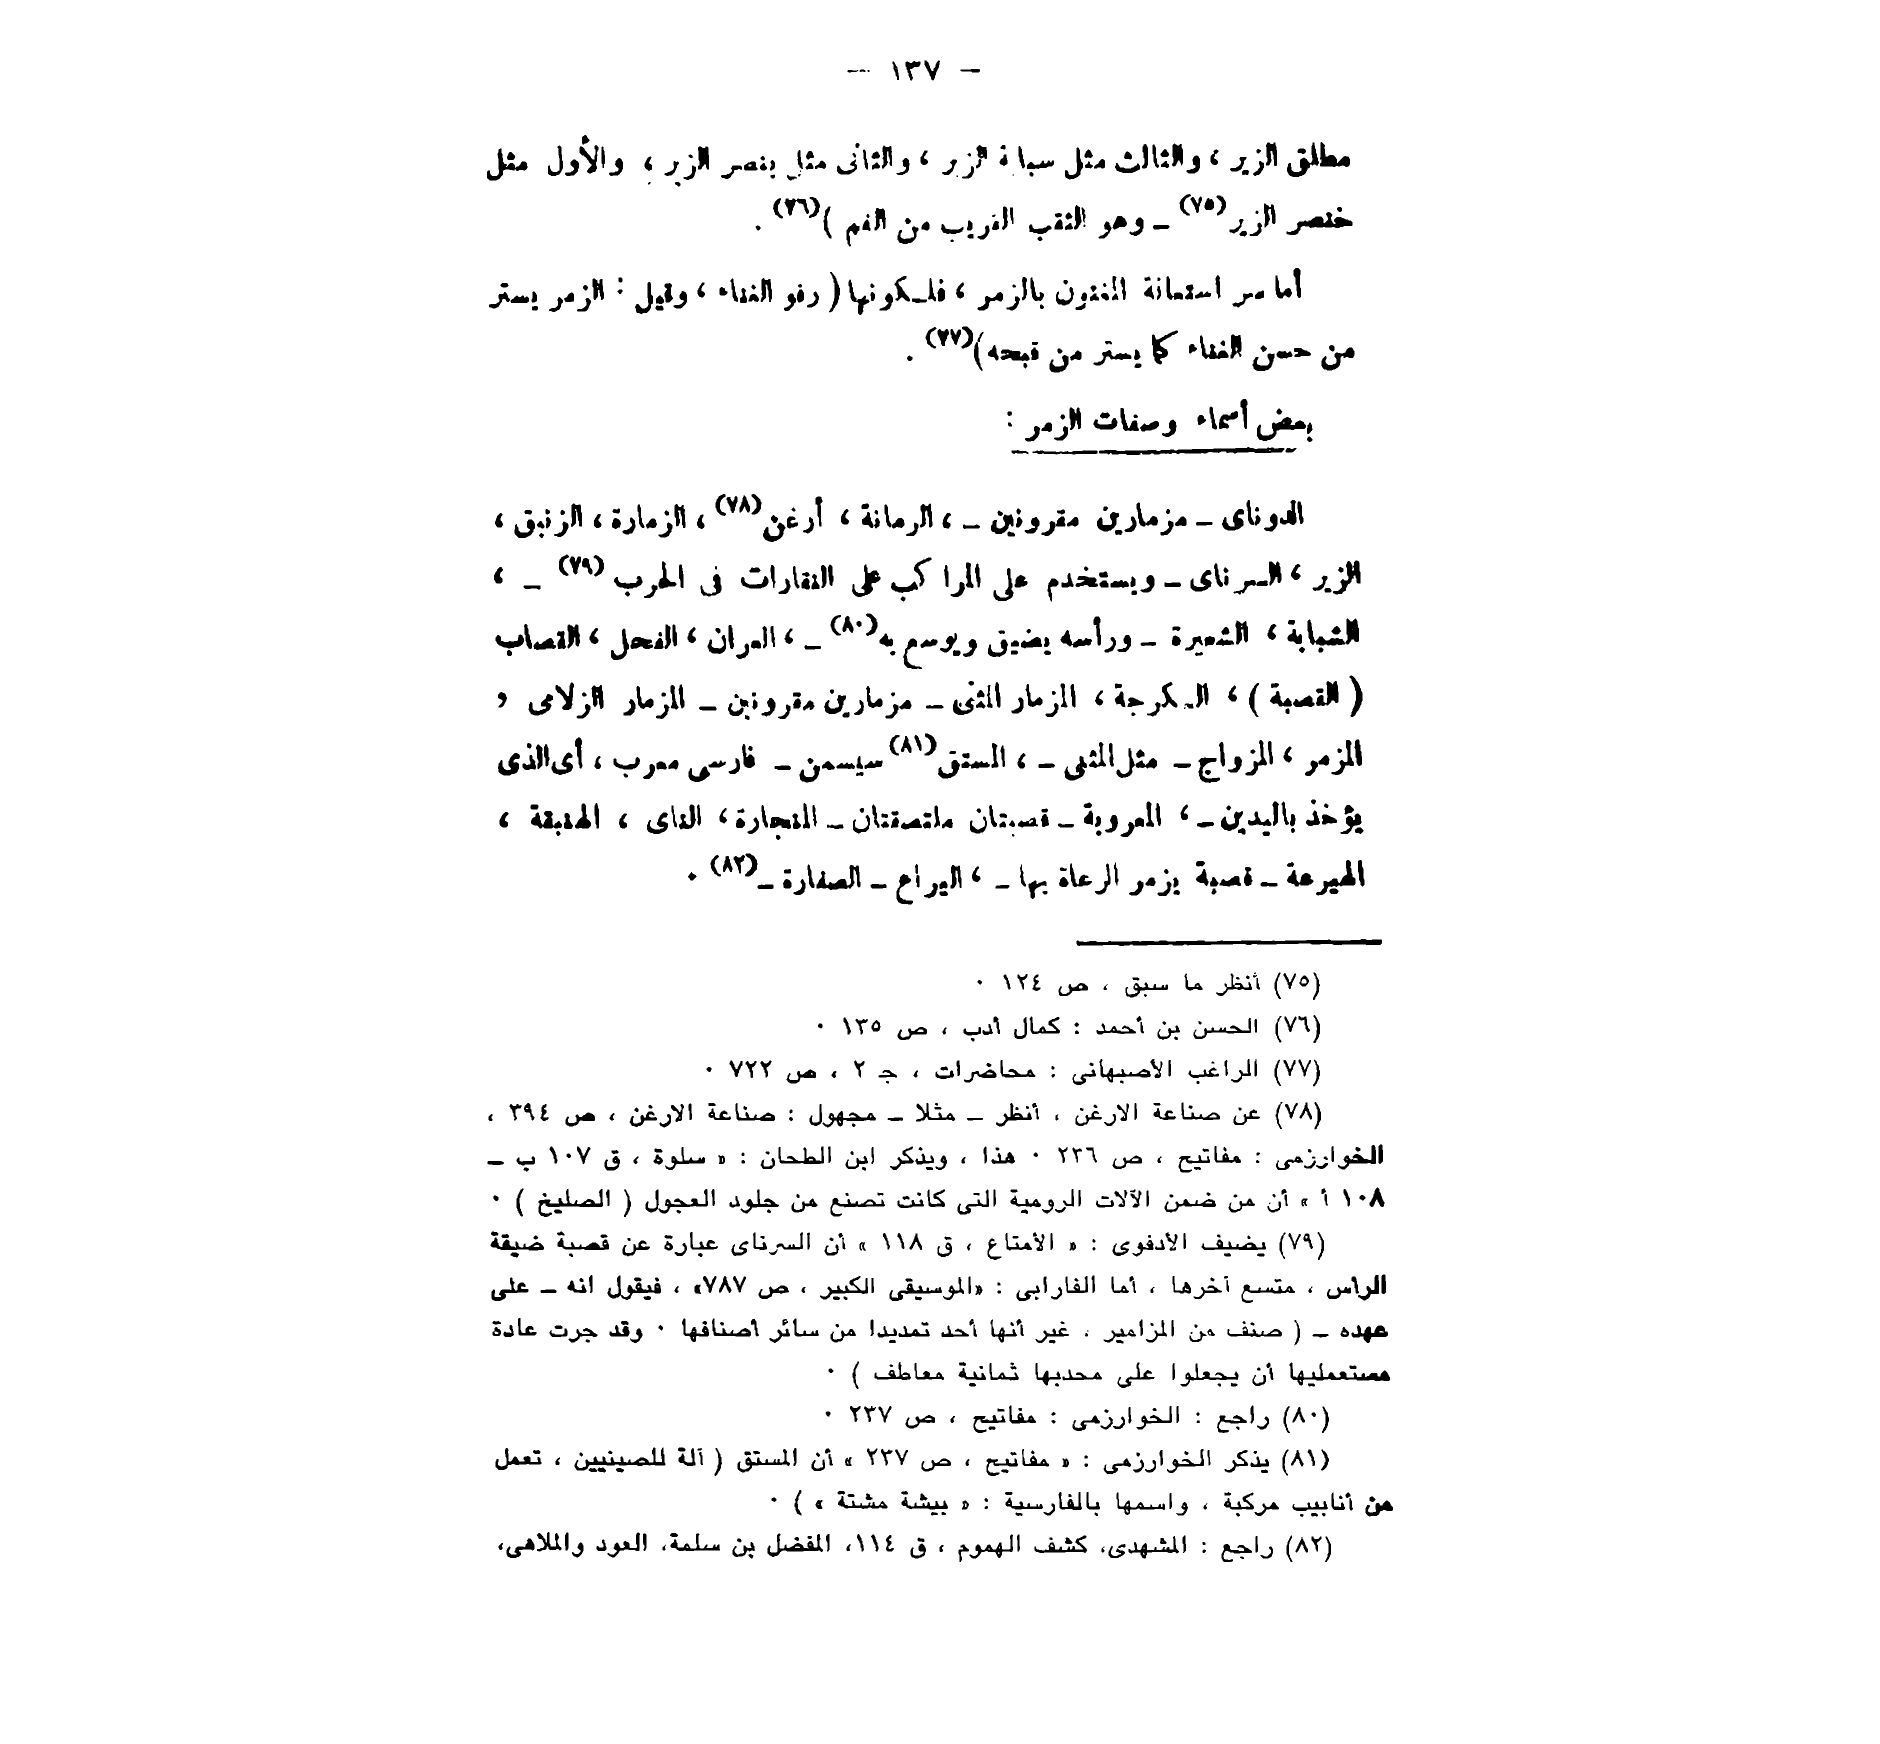 — ١٣٧ —
مطلق الزير ، والثالث مثل سبابة الزير ، والثانى مثل بنصر الزير ، والأول مثل
خنصر الزير (٧٥) ـ وهو الثقب القريب من الفم )(٧٦) .
أما سر استعانة المغنون بالزمر ، فلكونها ( رفو الغناء ، وقيل : الزمر يستر
من حسن الغناء كما يستر من قبحه)(٧٧) .
بعض أسماء وصفات الزمر :
الدوناى ـ مزمارين مقرونين ـ ، الرمانة ، أرغن (٧٨) ، الزمارة ، الزنبق ،
الزير ، السرناى ـ ويستخدم على المراكب على النقارات فى الحرب (٧٩) ـ ،
الشبابة ، الشعيرة ـ ورأسه يضيق ويوسع به (٨٠) ـ ، العران ، الفحل ، القصاب
( القصبة ) ، الكرجة ، المزمار المثنى ـ مزمارين مقرونين ـ المزمار الزلامى و
المزمر ، المزواج ـ مثل المثنى ـ ، المستق (٨١) سيسمن ـ فارسى معرب ، أى الذى
يؤخذ باليدين ـ ، المعروبة ـ قصبتان ملتصقتان ـ المنجارة ، الناى ، الهنبقة ،
الهيرعة ـ قصبة يزمر الرعاة بها ـ ، اليراع ـ الصفارة ـ (٨٢) .
(٧٥) أنظر ما سبق ، ص ١٢٤ ٠
(٧٦) الحسن بن أحمد : كمال أدب ، ص ١٣٥ ٠
(٧٧) الراغب الأصبهانى : محاضرات ، جـ ٢ ، ص ٧٢٢ ٠
(٧٨) عن صناعة الارغن ، أنظر ـ مثلا ـ مجهول : صناعة الارغن ، ص ٣٩٤ ،
الخوارزمى : مفاتيح ، ص ٢٣٦ ٠ هذا ، ويذكر ابن الطحان : « سلوة ، ق ١٠٧ ب ـ
١٠٨ أ » أن من ضمن الآلات الرومية التى كانت تصنع من جلود العجول ( الصليخ ) ٠
(٧٩) يضيف الأدفوى : « الأمتاع ، ق ١١٨ » أن السرناى عبارة عن قصبة ضيقة
الرأس ، متسع آخرها ، أما الفارابى : «الموسيقى الكبير ، ص ٧٨٧» ، فيقول انه ـ على
عهده ـ ( صنف من المزامير ، غير أنها أحد تمديدا من سائر أصنافها ٠ وقد جرت عادة
مستعمليها أن يجعلوا على محدبها ثمانية معاطف ) ٠
(٨٠) راجع : الخوارزمى : مفاتيح ، ص ٢٣٧ ٠
(٨١) يذكر الخوارزمى : « مفاتيح ، ص ٢٣٧ » أن المستق ( آلة للصينيين ، تعمل
من أنابيب مركبة ، واسمها بالفارسية : « بيشة مشتة » ) ٠
(٨٢) راجع : المشهدى، كشف الهموم ، ق ١١٤، المفضل بن سلمة، العود والملاهى،